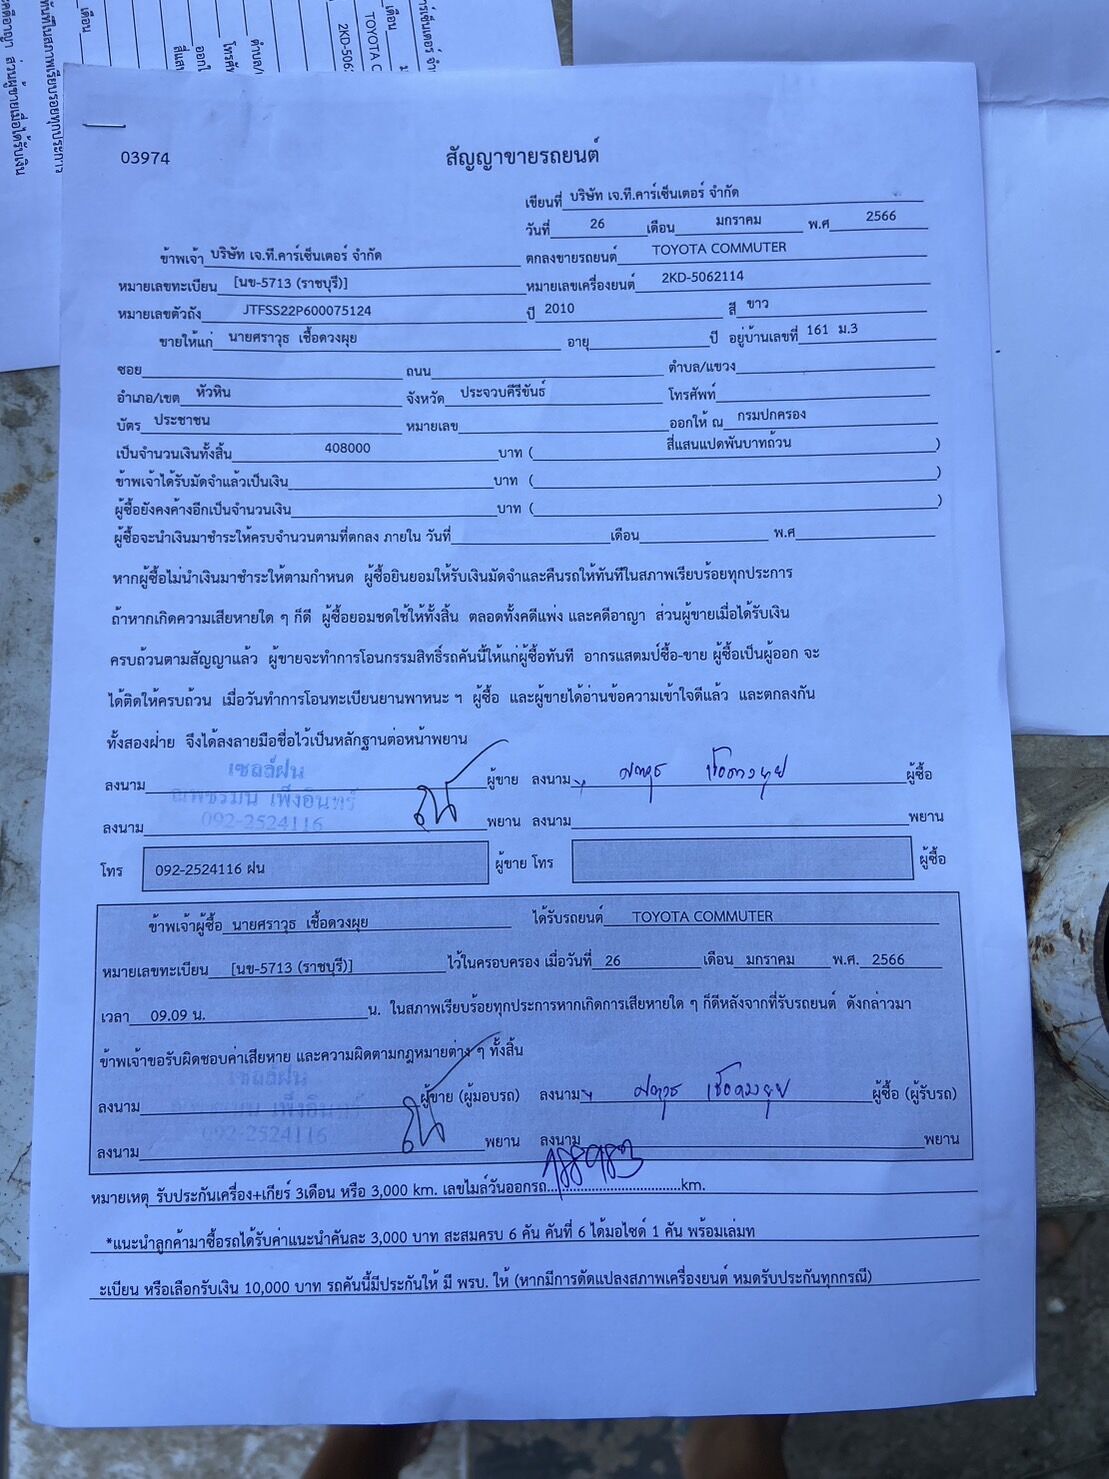 03974
สัญญาขายรถยนต์
เขียนที่ บริษัท เจ.ที.คาร์เซ็นเตอร์ จำกัด
วันที่ 26 เดือน มกราคม พ.ศ 2566
ข้าพเจ้า บริษัท เจ.ที.คาร์เซ็นเตอร์ จำกัด ตกลงขายรถยนต์ TOYOTA COMMUTER
หมายเลขทะเบียน [นข-5713 (ราชบุรี)] หมายเลขเครื่องยนต์ 2KD-5062114
หมายเลขตัวถัง JTFSS22P600075124 ปี 2010 สี ขาว
ขายให้แก่ นายศราวุธ เชื้อดวงผุย อายุ ปี อยู่บ้านเลขที่ 161 ม.3
ซอย ถนน ตำบล/แขวง
อำเภอ/เขต หัวหิน จังหวัด ประจวบคีรีขันธ์ โทรศัพท์
บัตร ประชาชน หมายเลข ออกให้ ณ กรมปกครอง
เป็นจำนวนเงินทั้งสิ้น 408000 บาท ( สี่แสนแปดพันบาทถ้วน )
ข้าพเจ้าได้รับมัดจำแล้วเป็นเงิน บาท ( )
ผู้ซื้อยังคงค้างอีกเป็นจำนวนเงิน บาท ( )
ผู้ซื้อจะนำเงินมาชำระให้ครบจำนวนตามที่ตกลง ภายใน วันที่ เดือน พ.ศ
หากผู้ซื้อไม่นำเงินมาชำระให้ตามกำหนด ผู้ซื้อยินยอมให้รับเงินมัดจำและคืนรถให้ทันทีในสภาพเรียบร้อยทุกประการ
ถ้าหากเกิดความเสียหายใด ๆ ก็ดี ผู้ซื้อยอมชดใช้ให้ทั้งสิ้น ตลอดทั้งคดีแพ่ง และคดีอาญา ส่วนผู้ขายเมื่อได้รับเงิน
ครบถ้วนตามสัญญาแล้ว ผู้ขายจะทำการโอนกรรมสิทธิ์รถคันนี้ให้แก่ผู้ซื้อทันที อากรแสตมป์ซื้อ-ขาย ผู้ซื้อเป็นผู้ออก จะ
ได้ติดให้ครบถ้วน เมื่อวันทำการโอนทะเบียนยานพาหนะ ฯ ผู้ซื้อ และผู้ขายได้อ่านข้อความเข้าใจดีแล้ว และตกลงกัน
ทั้งสองฝ่าย จึงได้ลงลายมือชื่อไว้เป็นหลักฐานต่อหน้าพยาน
เซลล์ฝน
ลงนาม ผู้ขาย ลงนาม ศราวุธ เชื้อดวงผุย ผู้ซื้อ
เพ็งอินทร์
092-2524116
ลงนาม ฝน พยาน ลงนาม พยาน
โทร 092-2524116 ฝน ผู้ขาย โทร ผู้ซื้อ
ข้าพเจ้าผู้ซื้อ นายศราวุธ เชื้อดวงผุย ได้รับรถยนต์ TOYOTA COMMUTER
หมายเลขทะเบียน [นข-5713 (ราชบุรี)] ไว้ในครอบครอง เมื่อวันที่ 26 เดือน มกราคม พ.ศ. 2566
เวลา 09.09 น. น. ในสภาพเรียบร้อยทุกประการหากเกิดการเสียหายใด ๆ ก็ดีหลังจากที่รับรถยนต์ ดังกล่าวมา
ข้าพเจ้าขอรับผิดชอบค่าเสียหาย และความผิดตามกฎหมายต่าง ๆ ทั้งสิ้น
เซลล์ฝน
ลงนาม ผู้ขาย (ผู้มอบรถ) ลงนาม ศราวุธ เชื้อดวงผุย ผู้ซื้อ (ผู้รับรถ)
เพ็งอินทร์
092-2524116
ลงนาม ฝน พยาน ลงนาม พยาน
หมายเหตุ รับประกันเครื่อง+เกียร์ 3เดือน หรือ 3,000 km. เลขไมล์วันออกรถ km.
*แนะนำลูกค้ามาซื้อรถได้รับค่าแนะนำคันละ 3,000 บาท สะสมครบ 6 คัน คันที่ 6 ได้มอไซด์ 1 คัน พร้อมเล่มท
ะเบียน หรือเลือกรับเงิน 10,000 บาท รถคันนี้มีประกันให้ มี พรบ. ให้ (หากมีการดัดแปลงสภาพเครื่องยนต์ หมดรับประกันทุกกรณี)